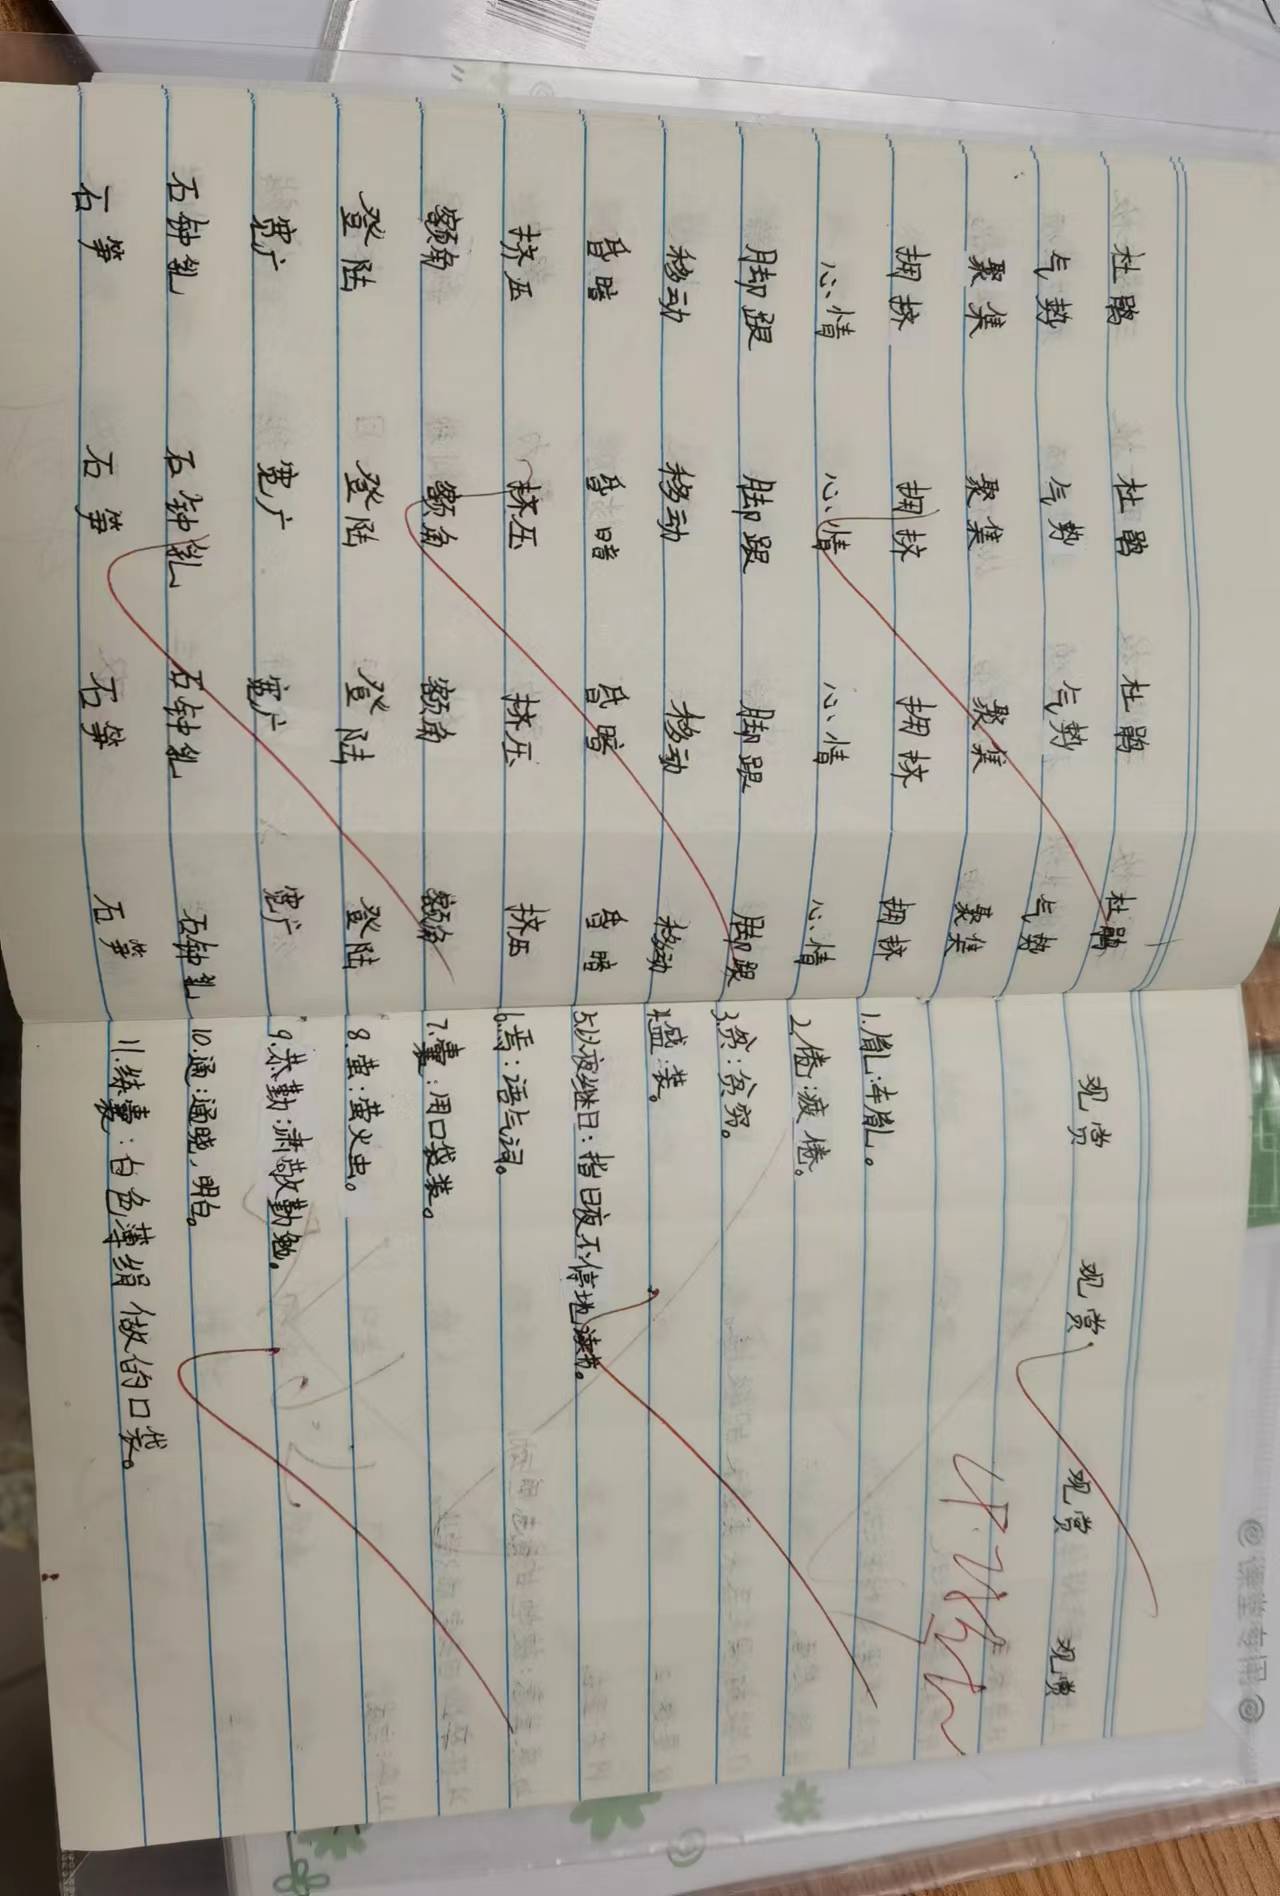 杜鹃 杜鹃 杜鹃 杜鹃
气势 气势 气势 气势
聚集 聚集 聚集 聚集
拥挤 拥挤 拥挤 拥挤
心情 心情 心情 心情
脚跟 脚跟 脚跟 脚跟
移动 移动 移动 移动
昏暗 昏暗 昏暗 昏暗
挤压 挤压 挤压 挤压
额角 额角 额角 额角
登陆 登陆 登陆 登陆
宽广 宽广 宽广 宽广
石钟乳 石钟乳 石钟乳 石钟乳
石笋 石笋 石笋 石笋
观赏 观赏 观赏 观赏
1.胤:车胤。
2.倦:疲倦。
3.贫:贫穷。
4.盛:装。
5.以夜继日:指日夜不停地读书。
6.焉:语气词。
7.囊:用口袋装。
8.萤:萤火虫。
9.恭勤:肃敬勤勉。
10.通:通晓,明白。
11.练囊:白色薄绢做的口袋。
课堂专用